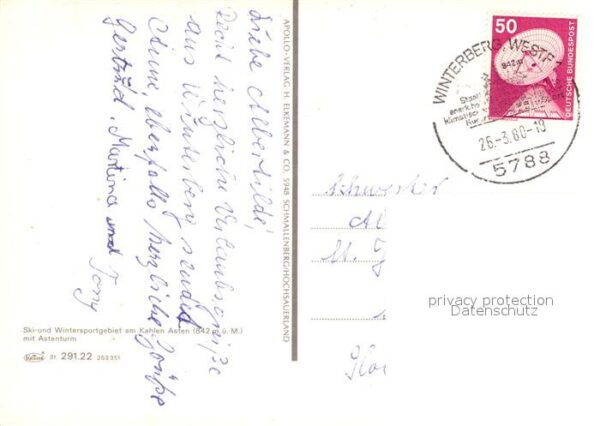 Liebe Albertilde,
Recht herzliche Urlaubsgrüße
aus Winterberg sendet
Anne ebenfalls herzliche Grüße
Gertrud, Martina und Tony
APOLLO-VERLAG H. ELKEMANN & CO., 5948 SCHMALLENBERG/HOCHSAUERLAND
Ski-und Wintersportgebiet am Kahlen Asten (842 m ü. M.)
mit Astenturm
31 291.22 252351
50
DEUTSCHE BUNDESPOST
WINTERBERG, WESTF
842 m
Staatl
anerk.
klimatisch
Kur
26.-3.80-18
5788
Schwester
Al
M. G
privacy protection
Datenschutz